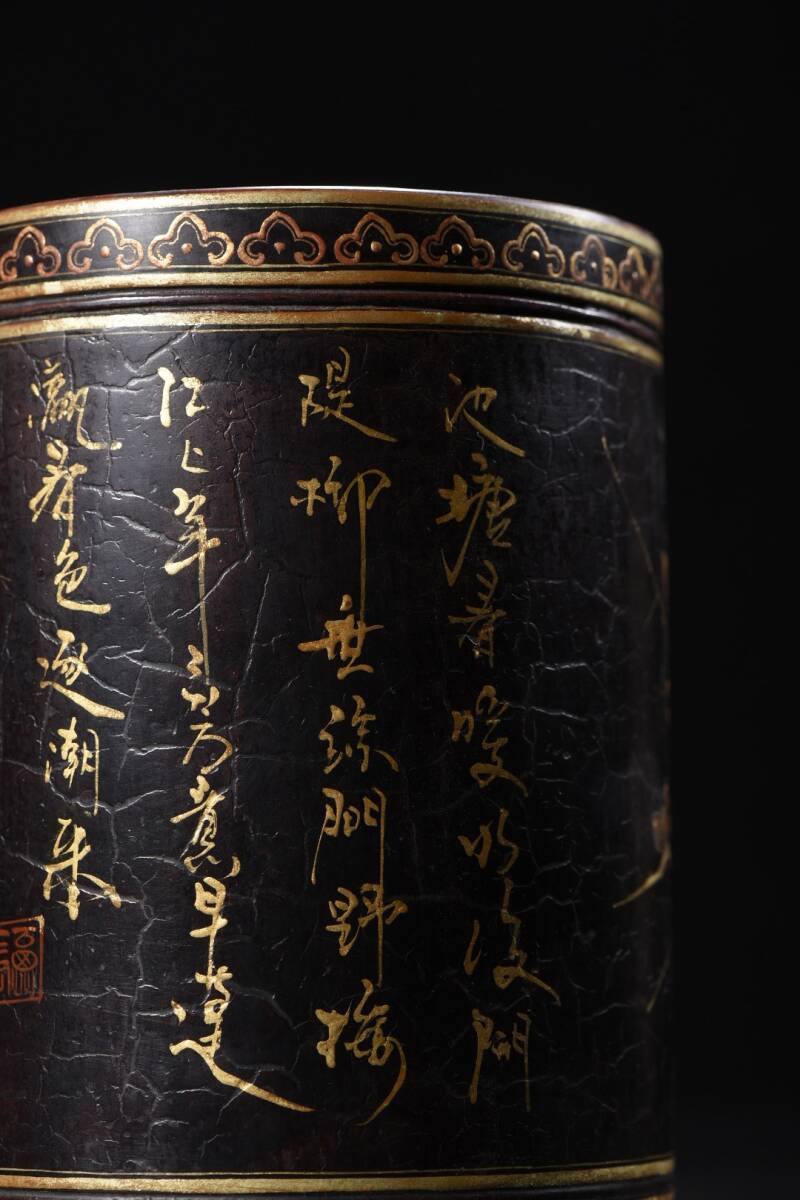 池塘春暖水紋開
堤柳垂絲間野梅
江上年々芳意早蓬
瀛春色逐潮來